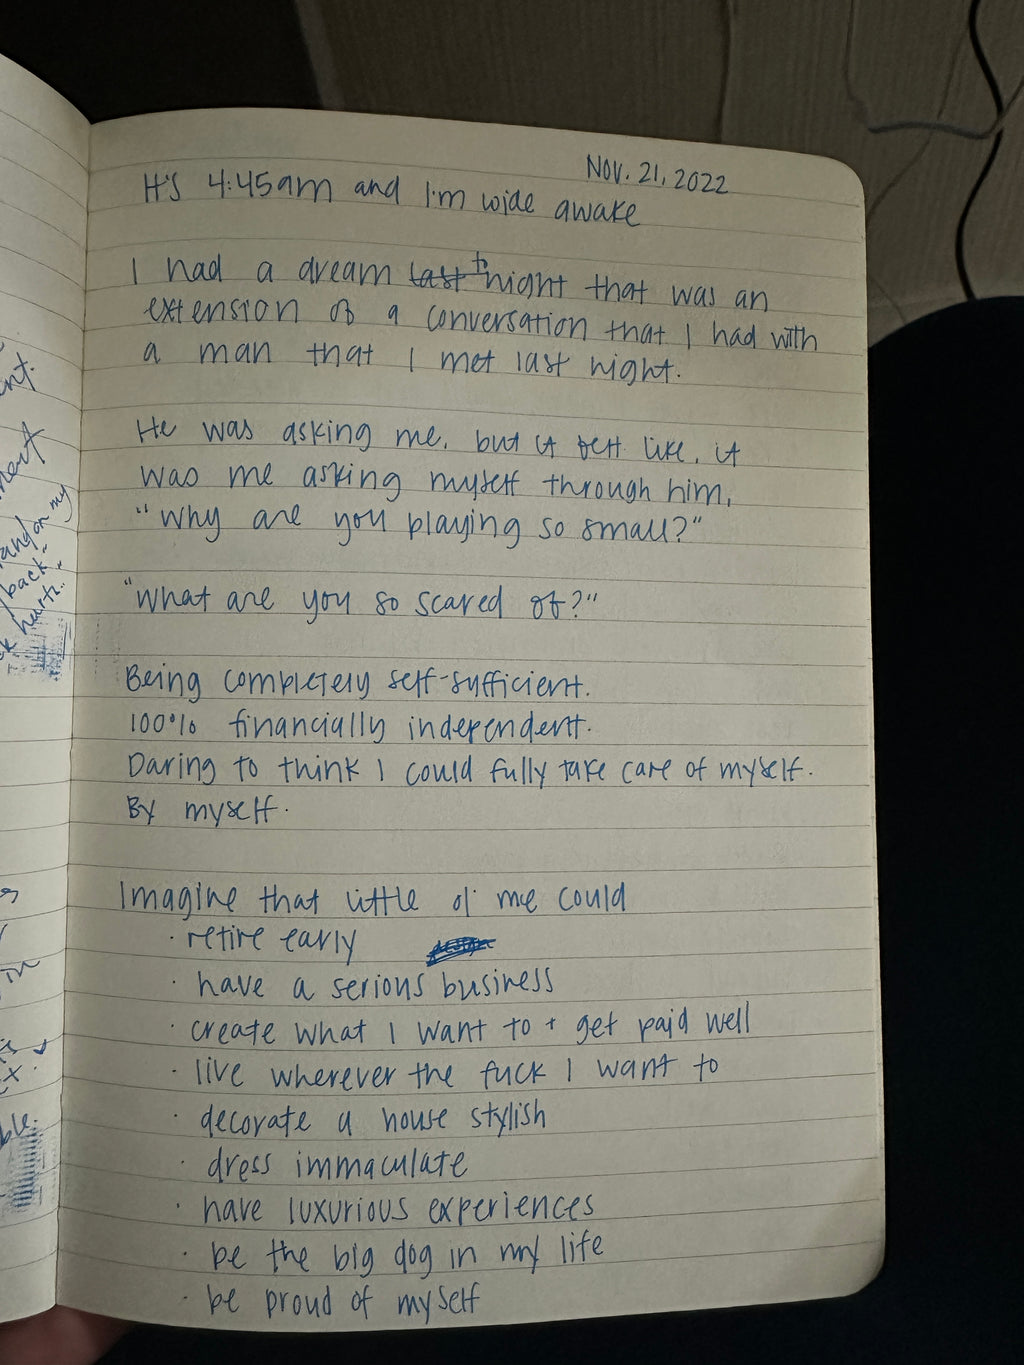 nt.
heart
hand on my
back
hearts..
in
ble.
Nov. 21, 2022
It's 4:45am and I'm wide awake
I had a dream last tonight that was an
extension of a conversation that I had with
a man that I met last night.
He was asking me, but it felt like, it
was me asking myself through him,
"Why are you playing so small?"
"What are you so scared of?"
Being completely self-sufficient.
100% financially independent.
Daring to think I could fully take care of myself.
By myself.
Imagine that little ol' me could
· retire early
· have a serious business
· create what I want to + get paid well
· live wherever the fuck I want to
· decorate a house stylish
· dress immaculate
· have luxurious experiences
· be the big dog in my life
· be proud of myself